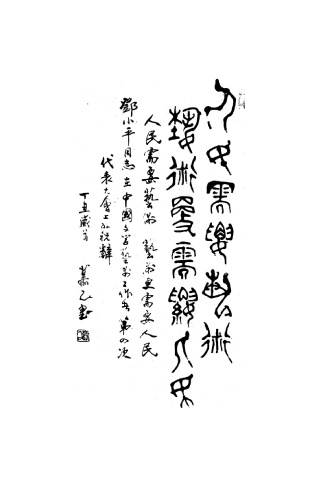 人民需要藝術
藝術更需要人民
人民需要藝術 藝術更需要人民
鄧小平同志在中國文學藝術工作者第四次
代表大會上的祝辭
丁丑歲 書